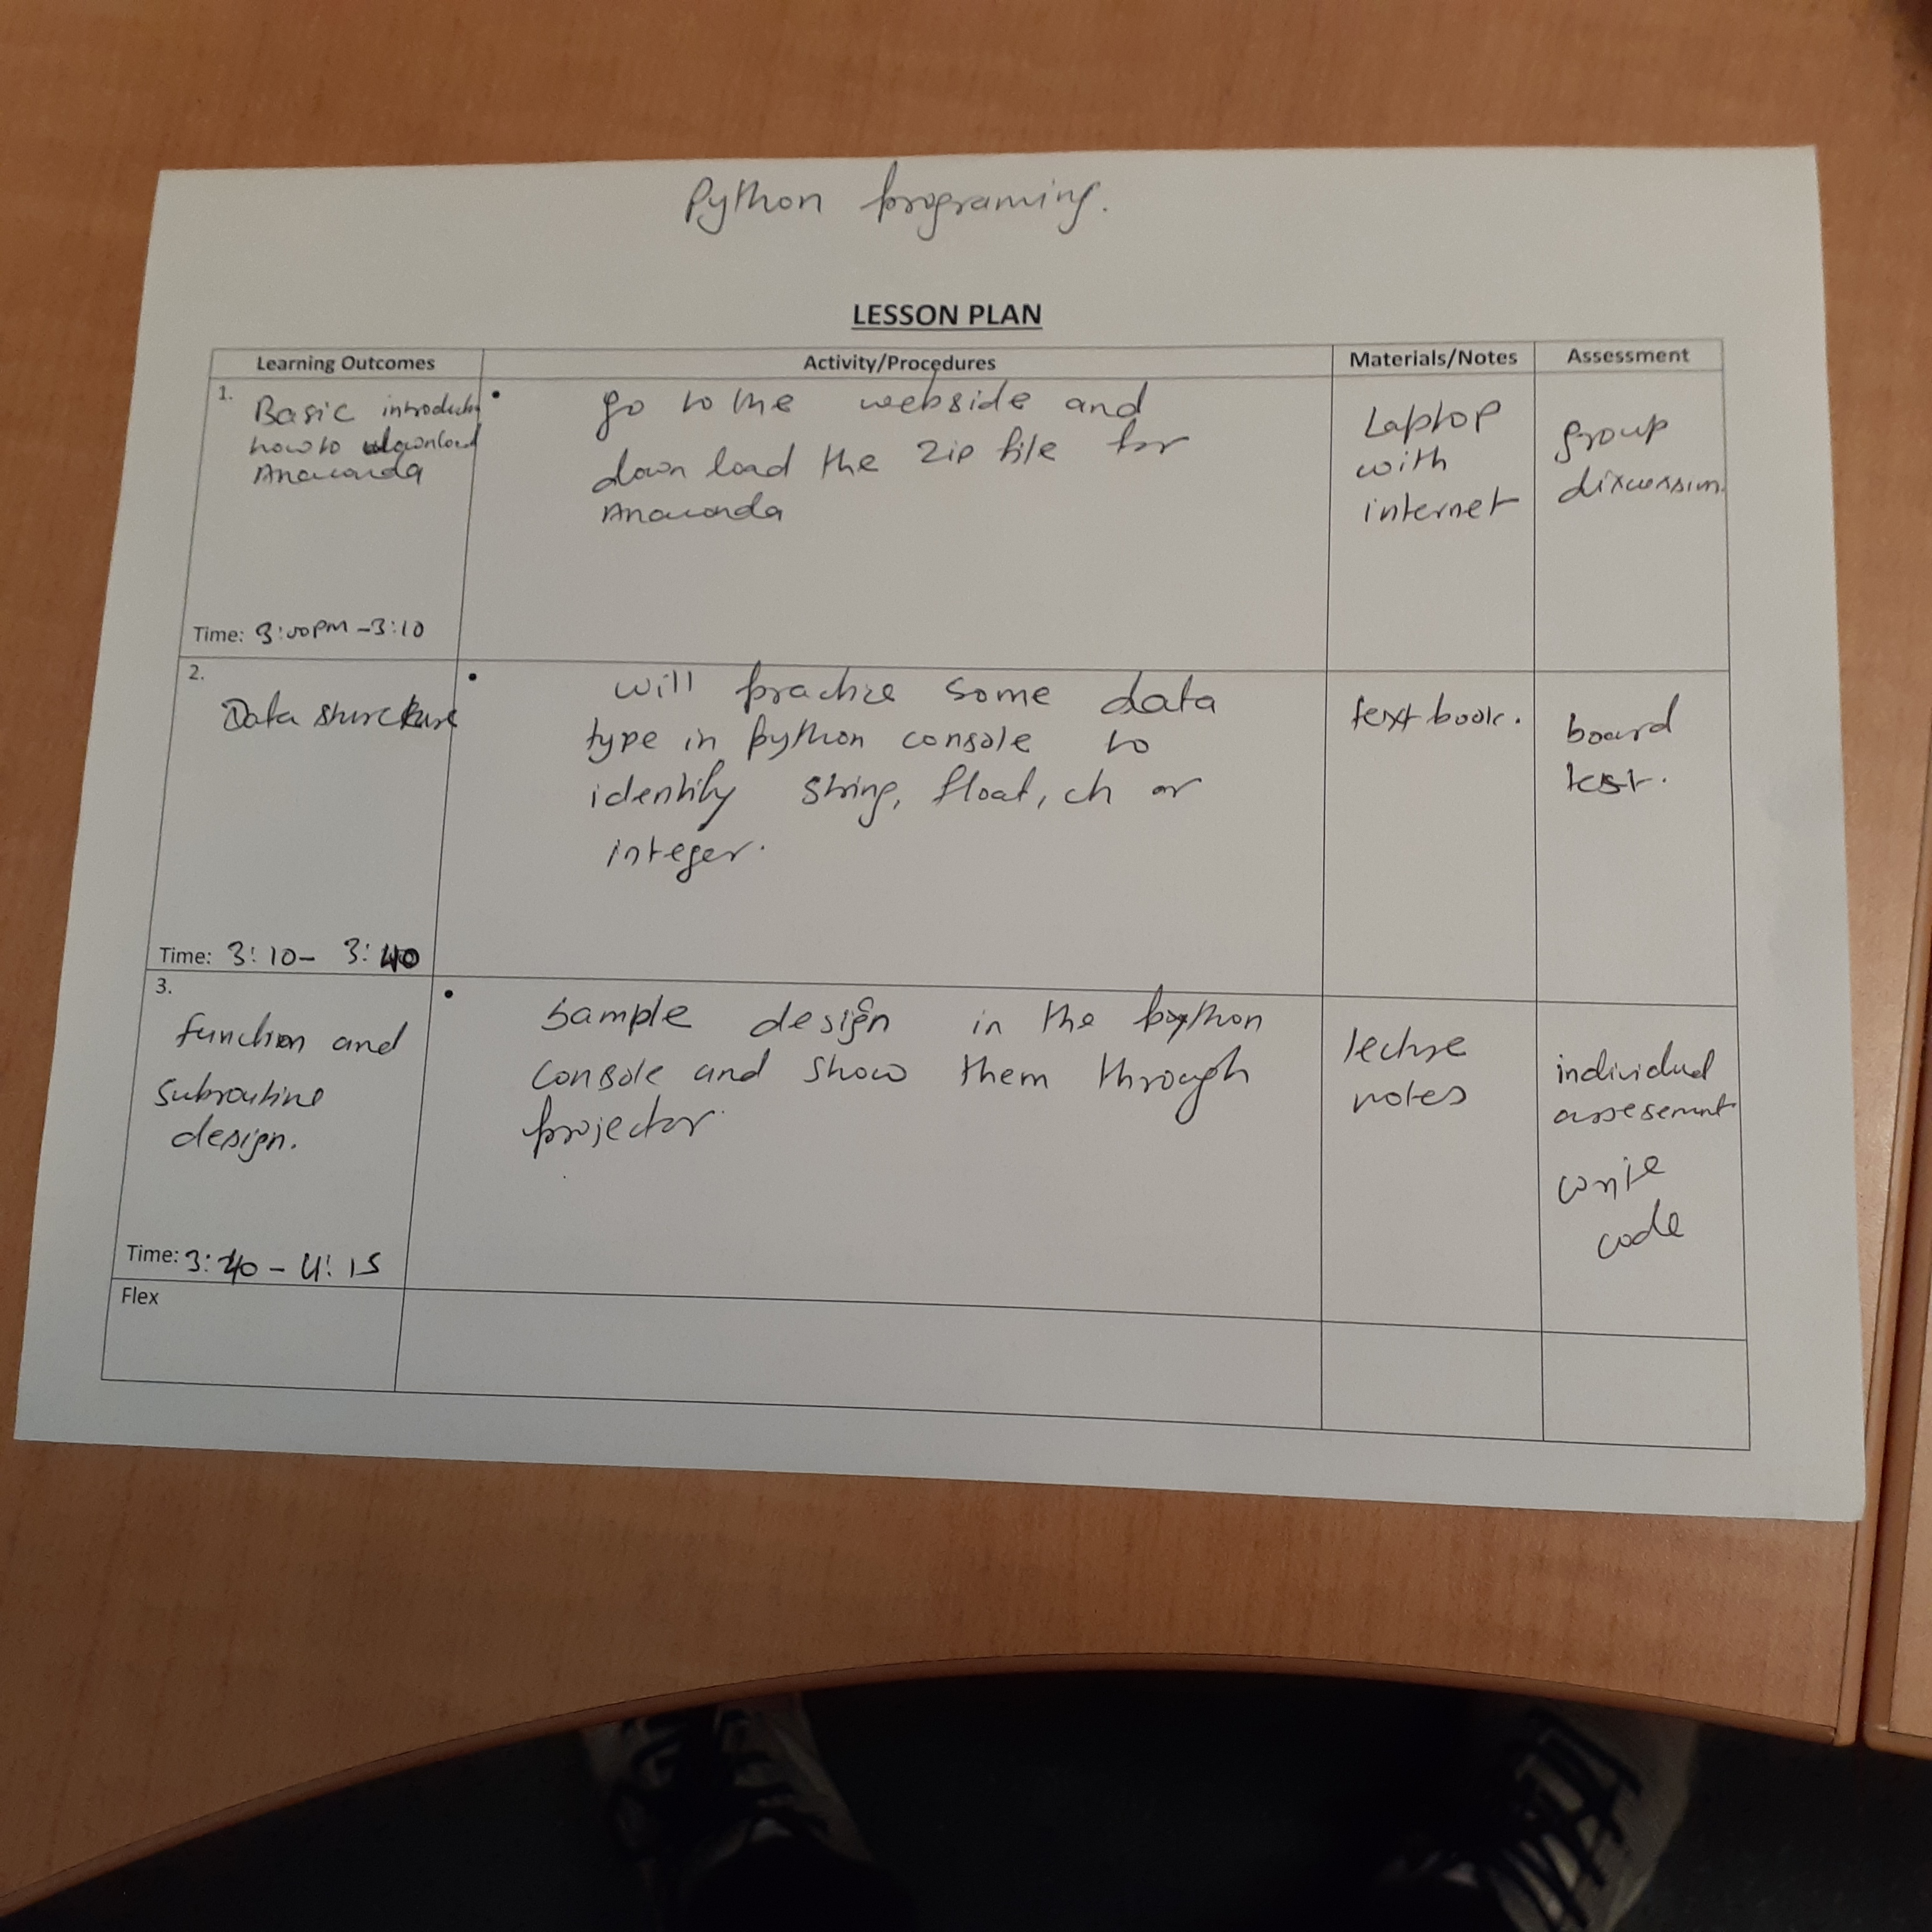 Python programing.
LESSON PLAN
Learning Outcomes
Activity/Procedures
Materials/Notes
Assessment
1.
Basic
how to download
Anaconda
Time: 3:00PM - 3:10
• go to the webside and
down load the zip file for
Anaconda
Laptop
with
internet
group
discussion.
2.
Data
Time: 3:10 - 3:40
• will practice some data
type in python console to
identify string, float, ch or
integer.
text book.
board
test.
3.
function and
subroutine
design.
Time: 3:40 - 4:15
• Sample design in the python
console and show them through
projector.
lecture
notes
individual
assesement
write
code
Flex